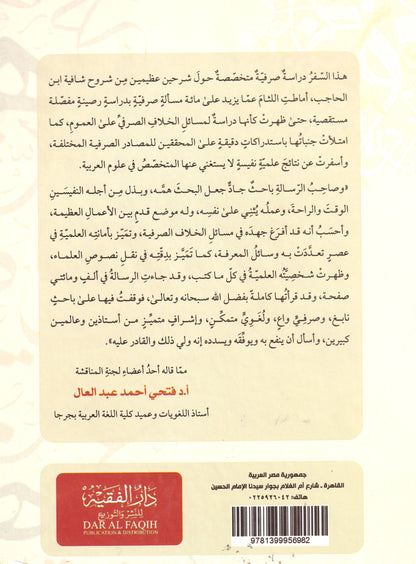 هذا السِّفرُ دراسةٌ صرفيَّةٌ متخصّصةٌ حولَ شرحين عظيمين مِن شروح شافية ابن
الحاجب، أماطتِ اللثامَ عمّا يزيد علىٰ مائة مسألةٍ صرفيّةٍ بدراسةٍ رصينةٍ مفصّلة
مستقصية، حتىٰ ظهرتْ كأنها دراسةٌ لمسائل الخلاف الصرفيِّ علىٰ العموم، كما
امتلأتْ جنباتُها باستدراكاتٍ دقيقةٍ علىٰ المحققين للمصادر الصرفية المختلفة،
وأسفرتْ عن نتائجَ علميّةٍ نفيسةٍ لا يستغني عنها المتخصّصُ في علوم العربية.
«وصاحِبُ الرِّسالةِ باحثٌ جادٌّ جعل البحثَ همَّه، وبذل مِن أجله النفيسَين
الوقتَ والراحةَ، وعملُه يُثنِي علىٰ نفسِه، وله موضع قدمٍ بين الأعمال العظيمة،
وأحسَبُ أنه قد أفرغَ جهدَه في مسائل الخلاف الصرفية، وتميّز بأمانتِه العلميّة في
عصرٍ تعدَّدتْ به وسائلُ المعرفة، كما تَمَيَّز بدِقّتِه في نقل نصوص العلماء،
وظهرتْ شخصيَّتُه العلميّةُ في كلِّ ما كتب، وقد جاءتِ الرسالةُ في ألفٍ ومائتي
صفحة، وقد قرأتُها كاملةً بفضل الله سبحانه وتعالىٰ، فوقفتُ فيها علىٰ باحثٍ
نابغ، وصرفيٍّ واعٍ، ولُغَويٍّ متمكّن، وإشرافٍ متميّزٍ من أستاذين وعالمين
كبيرين، وأسأل أن ينفع به ويوفّقَه ويسدده إنه ولي ذلك والقادر عليه».
ممّا قاله أحدُ أعضاءِ لجنةِ المناقشة
أ.د فتحي أحمد عبد العال
أستاذ اللغويات وعميد كلية اللغة العربية بجرجا
جمهورية مصر العربية
القاهرة ـ شارع أم الغلام بجوار سيدنا الإمام الحسين
هاتف: ٠٢٢٥٩٢٦٠٤٢
دار الفقيه
للنشر والتوزيع
DAR AL FAQIH
PUBLICATION & DISTRIBUTION
9781399956982